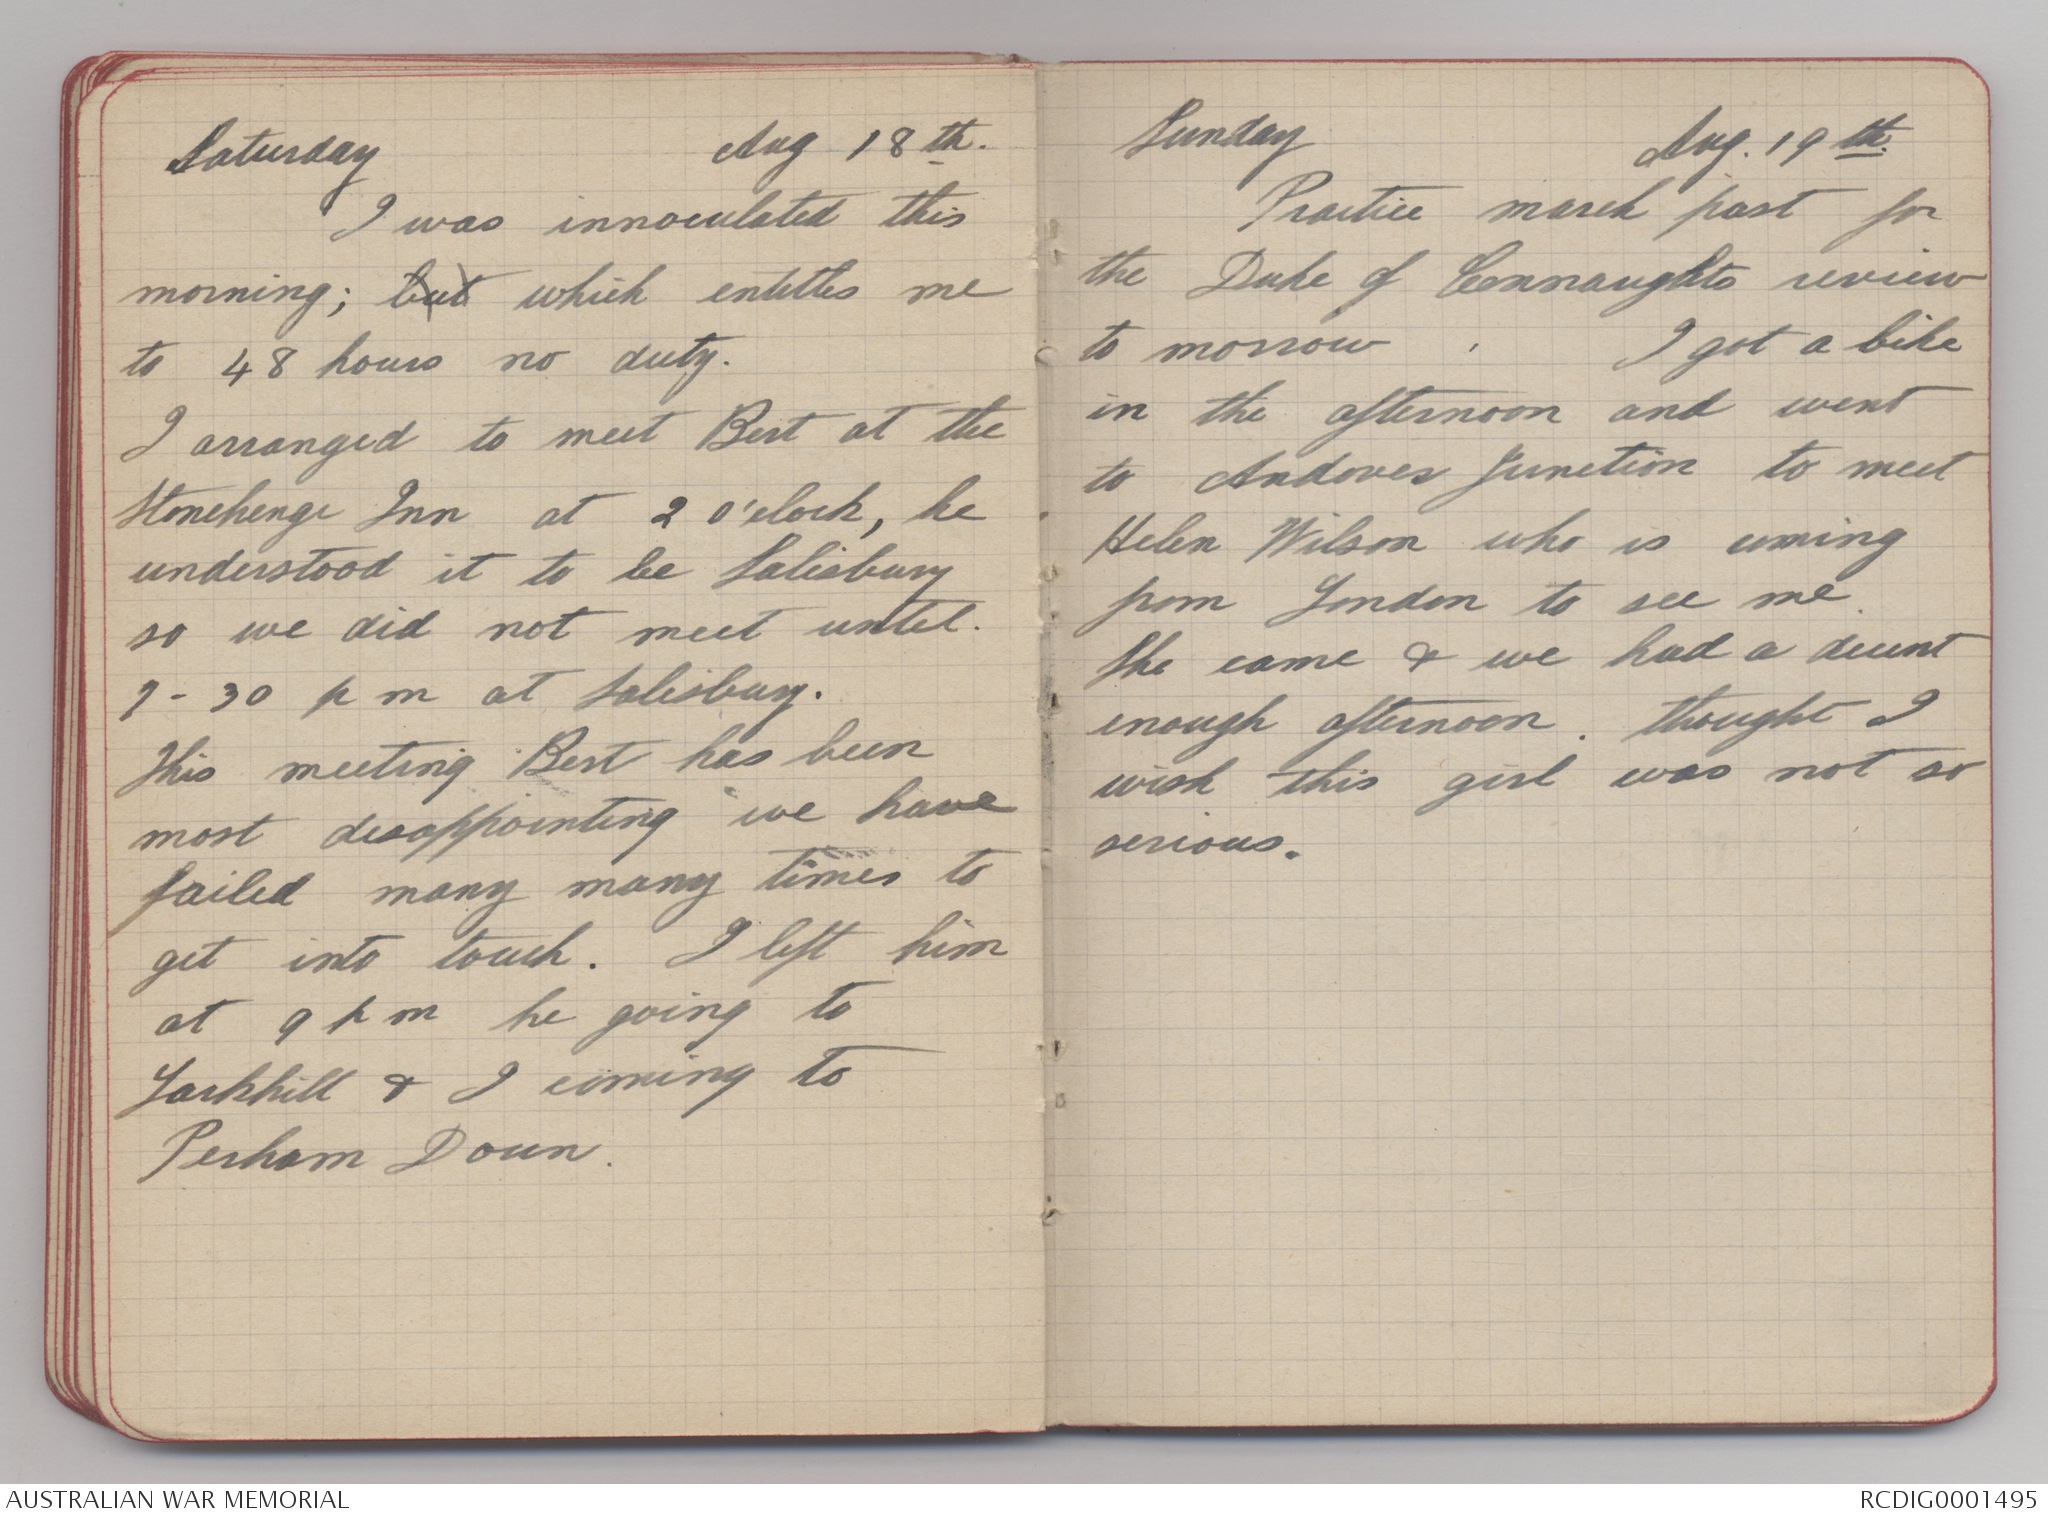 Saturday Aug 18th.
I was innoculated this
morning; but which entitles me
to 48 hours no duty.
I arranged to meet Bert at the
Stonehenge Inn at 2 o'clock, he
understood it to be Salisbury
so we did not meet until.
7-30 pm at Salisbury.
This meeting Bert has been
most disappointing we have
failed many many times to
get into touch. I left him
at 9 pm he going to
Larkhill & I coming to
Perham Down.
Sunday Aug. 19th.
Practice march past for
the Duke of Connaughts review
to morrow. I got a bike
in the afternoon and went
to Andover Junction to meet
Helen Wilson who is coming
from London to see me.
She came & we had a decent
enough afternoon. thought I
wish this girl was not so
serious.
AUSTRALIAN WAR MEMORIAL RCDIG0001495